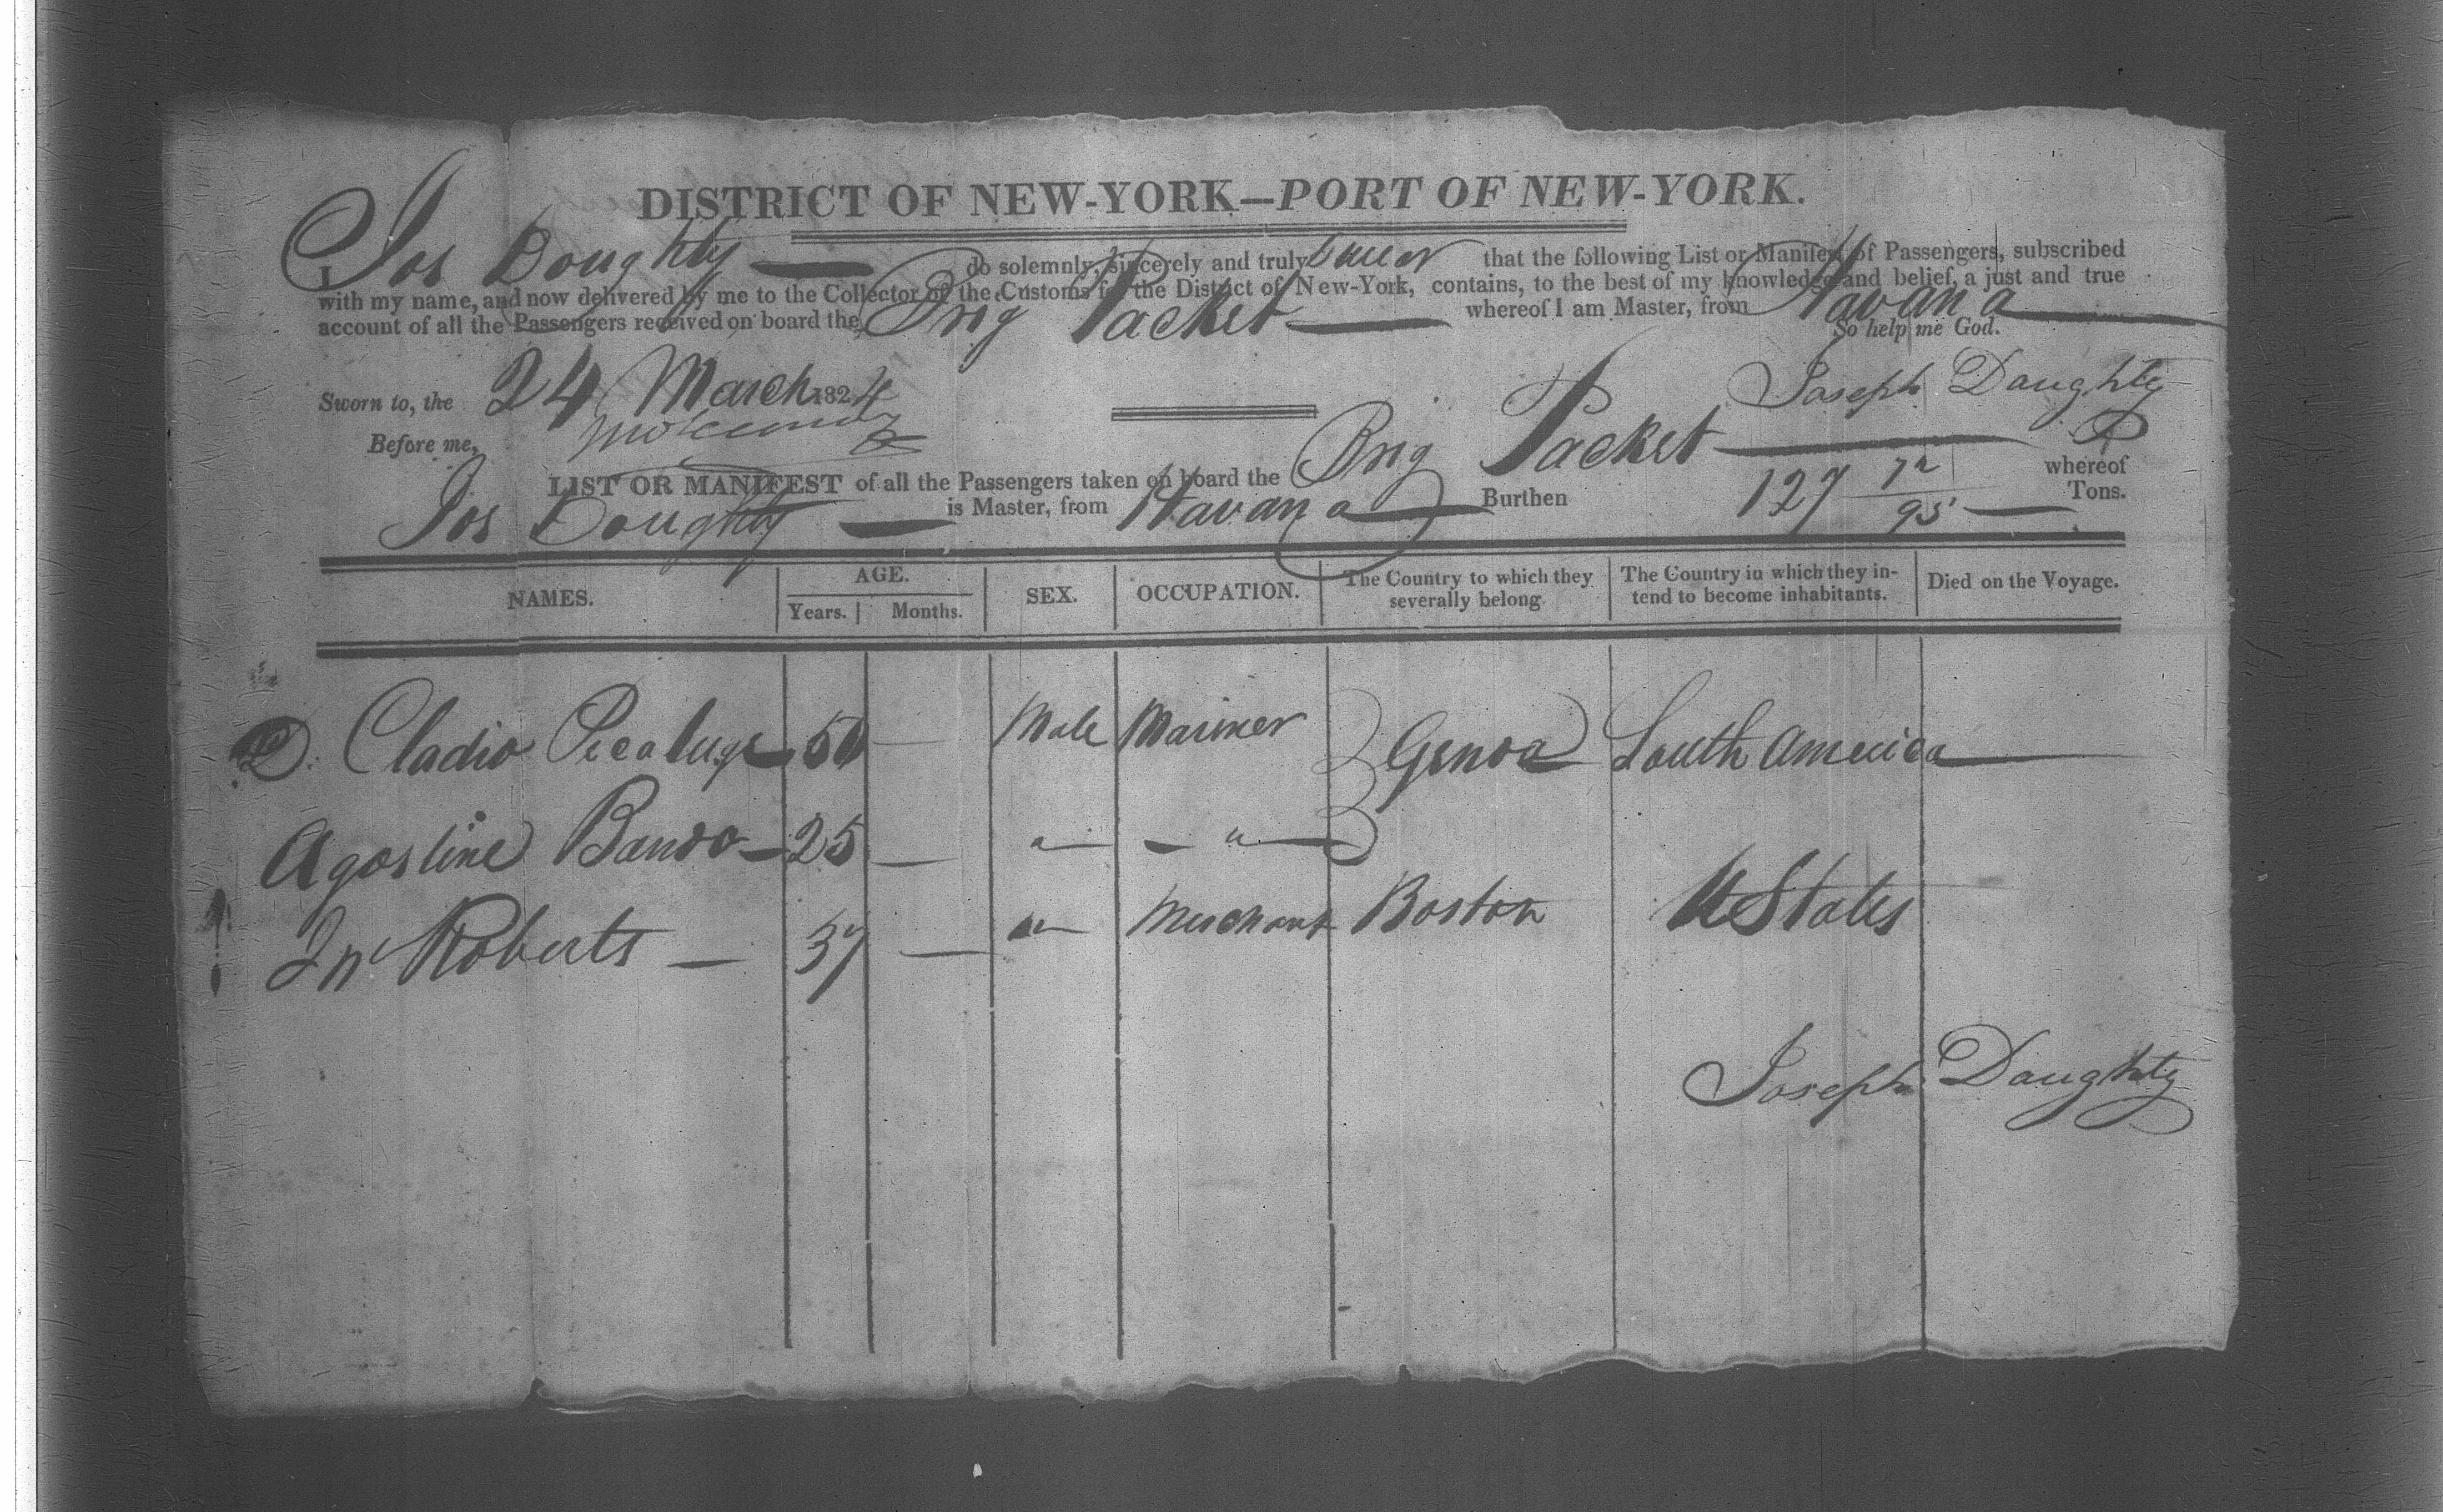 DISTRICT OF NEW-YORK—PORT OF NEW-YORK.
I Jos Doughty — do solemnly, sincerely and truly swear that the following List or Manifest of Passengers, subscribed
with my name, and now delivered by me to the Collector of the Customs for the District of New-York, contains, to the best of my knowledge and belief, a just and true
account of all the Passengers received on board the Brig Packet — whereof I am Master, from Havana —
So help me God.
Sworn to, the 24 March 1824 Joseph Doughty
Before me,
LIST OR MANIFEST of all the Passengers taken on board the Brig Packet — whereof
Jos Doughty — is Master, from Havana — Burthen 127 72/95 — Tons.
NAMES. AGE. Years. Months. SEX. OCCUPATION. The Country to which they severally belong. The Country in which they intend to become inhabitants. Died on the Voyage.
D. Cladio 50 — Male Mariner Genoa South America —
Agostine — 25 — " — " —
Jn Roberts — 37 — " Merchant Boston U States
Joseph Doughty